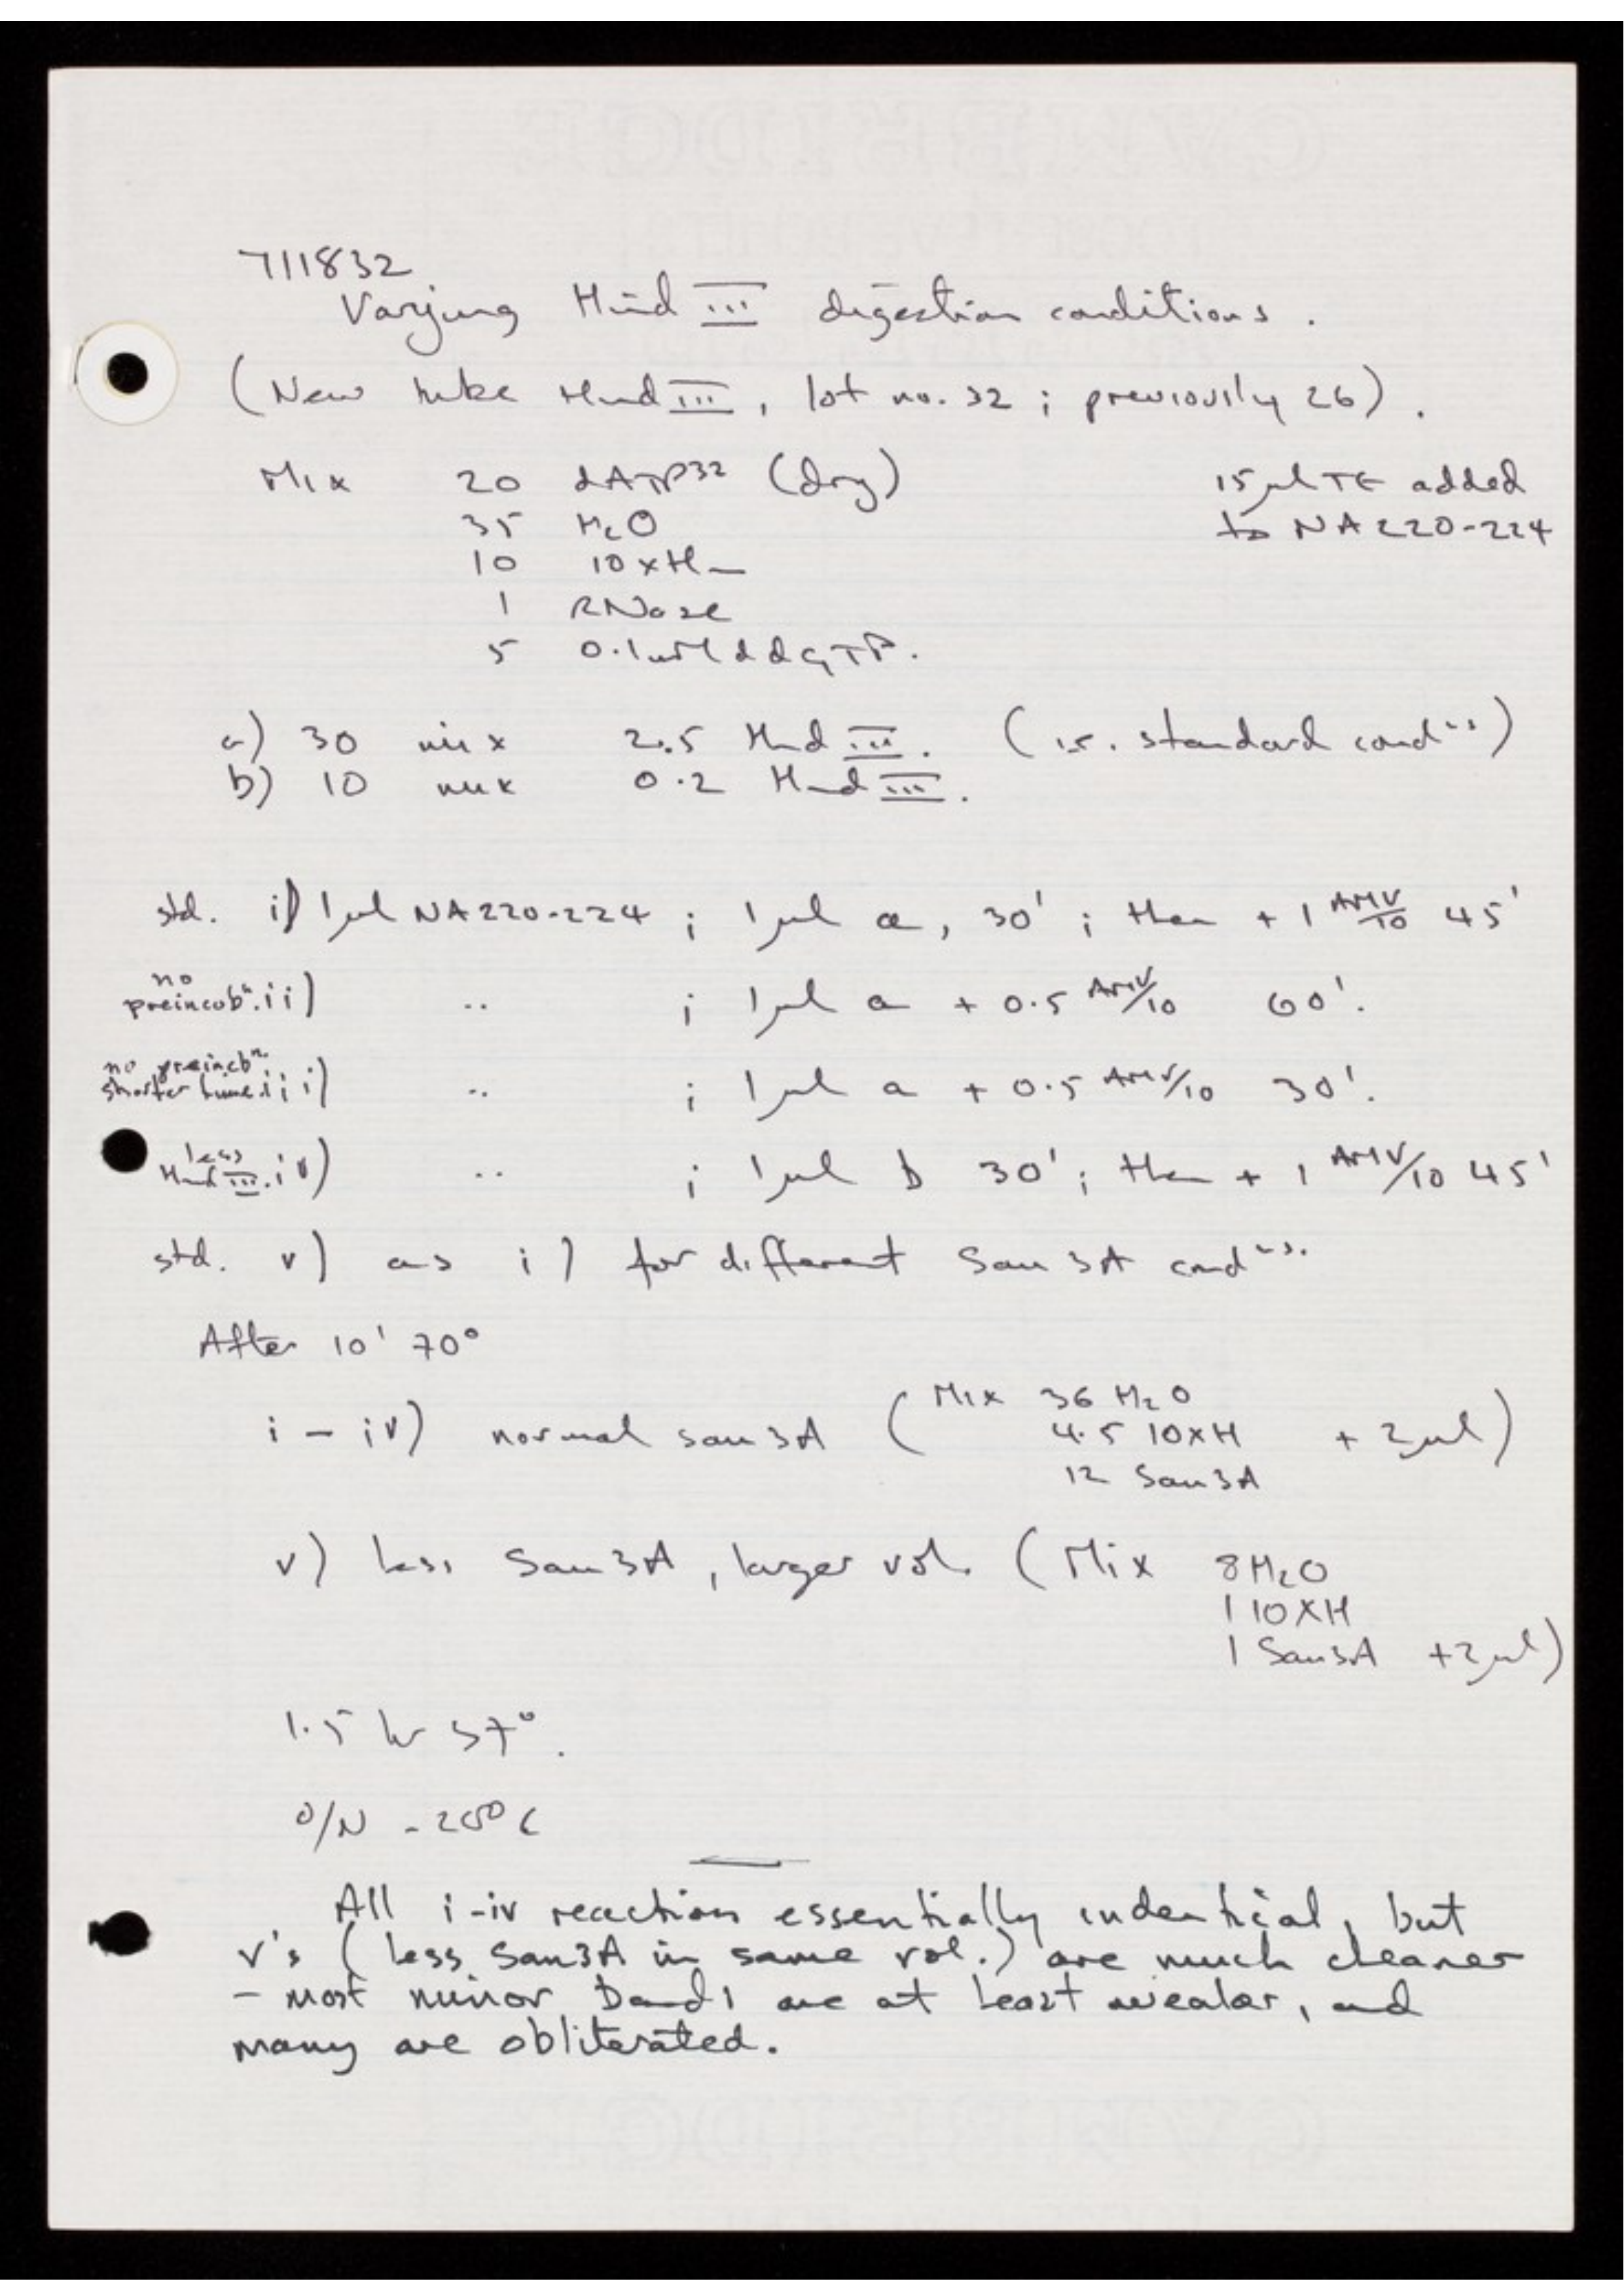 711832
Varying Hind III digestion conditions.
(New tube Hind III, lot no. 32; previously 26).
Mix 20 dATP32 (dry) 15µl TE added
35 H2O to NA220-224
10 10xH
1 RNase
5 0.1mM ddGTP.
a) 30 mix 2.5 Hind III. (i.e. standard condns)
b) 10 mix 0.2 Hind III.
std. i) 1µl NA220-224 ; 1µl a, 30' ; then + 1 AMV/10 45'
no
preincubn. ii) .. ; 1µl a + 0.5 AMV/10 60'.
no preincbn.
shorter time. iii) .. ; 1µl a + 0.5 AMV/10 30'.
less
Hind III. iv) .. ; 1µl b 30'; then + 1 AMV/10 45'
std. v) as i) for different Sau3A condns.
After 10' 70°
i - iv) normal sau3A (Mix 36 H2O
4.5 10xH + 2µl)
12 Sau3A
v) less Sau3A, larger vol. (Mix 8H2O
1 10XH
1 Sau3A +2µl)
1.5 hr 37°.
O/N -20°C
All i-iv reaction essentially indentical, but
v's (less Sau3A in same vol.) are much cleaner
- most minor bands are at least weaker, and
many are obliterated.